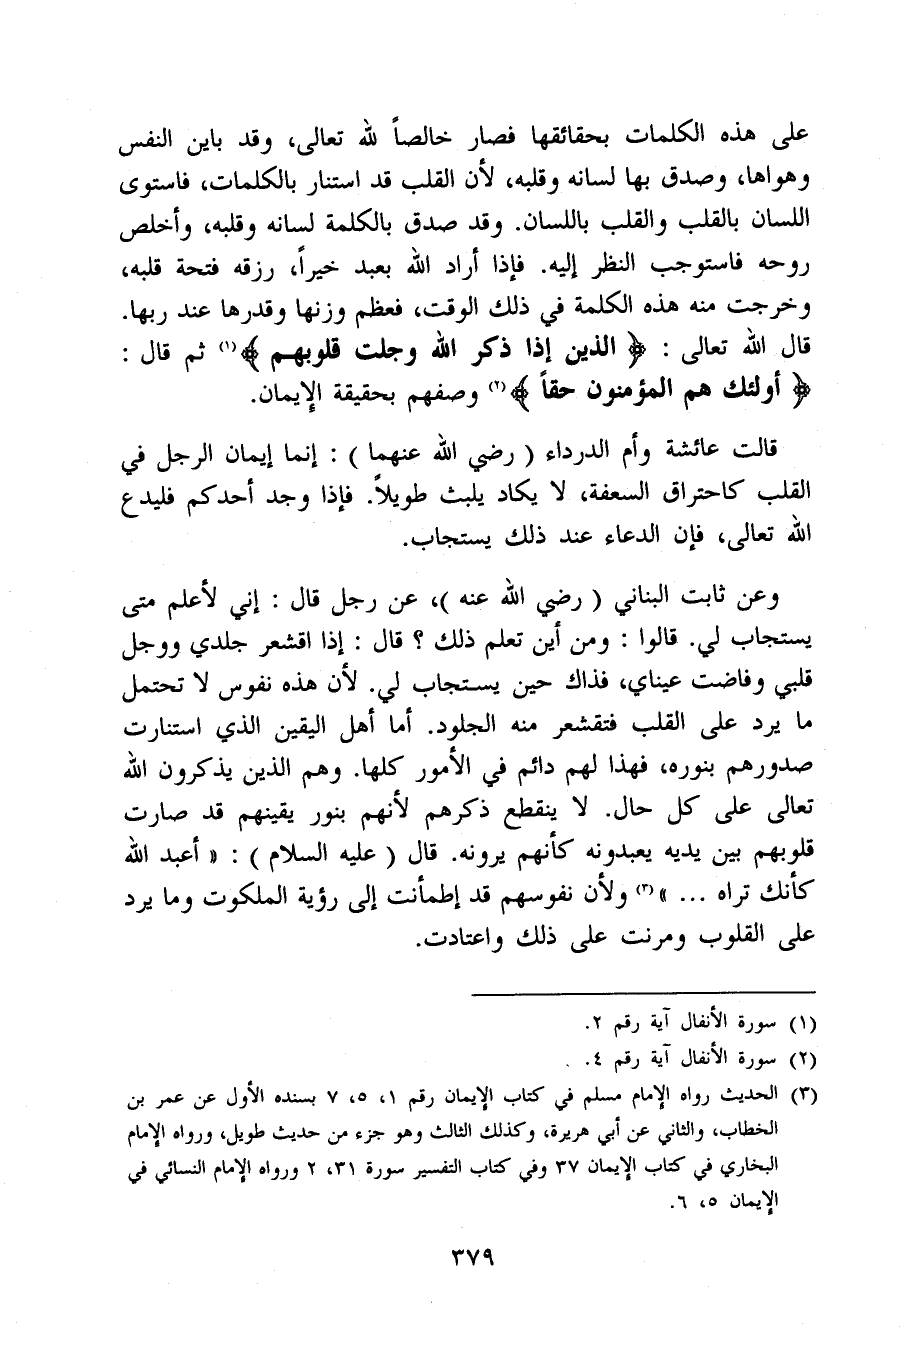 على هذه الكلمات بحقائقها فصار خالصاً لله تعالى، وقد باين النفس
وهواها، وصدق بها لسانه وقلبه، لأن القلب قد استنار بالكلمات، فاستوى
اللسان بالقلب والقلب باللسان. وقد صدق بالكلمة لسانه وقلبه، وأخلص
روحه فاستوجب النظر إليه. فإذا أراد الله بعبد خيراً، رزقه فتحة قلبه،
وخرجت منه هذه الكلمة في ذلك الوقت، فعظم وزنها وقدرها عند ربها.
قال الله تعالى : ﴿ الذين إذا ذكر الله وجلت قلوبهم ﴾(١) ثم قال :
﴿ أولئك هم المؤمنون حقاً ﴾(٢) وصفهم بحقيقة الإيمان.
قالت عائشة وأم الدرداء ( رضي الله عنهما ) : إنما إيمان الرجل في
القلب كاحتراق السعفة، لا يكاد يلبث طويلاً. فإذا وجد أحدكم فليدع
الله تعالى، فإن الدعاء عند ذلك يستجاب.
وعن ثابت البناني ( رضي الله عنه )، عن رجل قال : إني لأعلم متى
يستجاب لي. قالوا : ومن أين تعلم ذلك ؟ قال : إذا اقشعر جلدي ووجل
قلبي وفاضت عيناي، فذاك حين يستجاب لي. لأن هذه نفوس لا تحتمل
ما يرد على القلب فتقشعر منه الجلود. أما أهل اليقين الذي استنارت
صدورهم بنوره، فهذا لهم دائم في الأمور كلها. وهم الذين يذكرون الله
تعالى على كل حال. لا ينقطع ذكرهم لأنهم بنور يقينهم قد صارت
قلوبهم بين يديه يعبدونه كأنهم يرونه. قال ( عليه السلام ) : « أعبد الله
كأنك تراه ... »(٣) ولأن نفوسهم قد إطمأنت إلى رؤية الملكوت وما يرد
على القلوب ومرنت على ذلك واعتادت.
(١) سورة الأنفال آية رقم ٢.
(٢) سورة الأنفال آية رقم ٤.
(٣) الحديث رواه الإمام مسلم في كتاب الإيمان رقم ١، ٥، ٧ بسنده الأول عن عمر بن
الخطاب، والثاني عن أبي هريرة، وكذلك الثالث وهو جزء من حديث طويل، ورواه الإمام
البخاري في كتاب الإيمان ٣٧ وفي كتاب التفسير سورة ٣١، ٢ ورواه الإمام النسائي في
الإيمان ٥، ٦.
٣٧٩